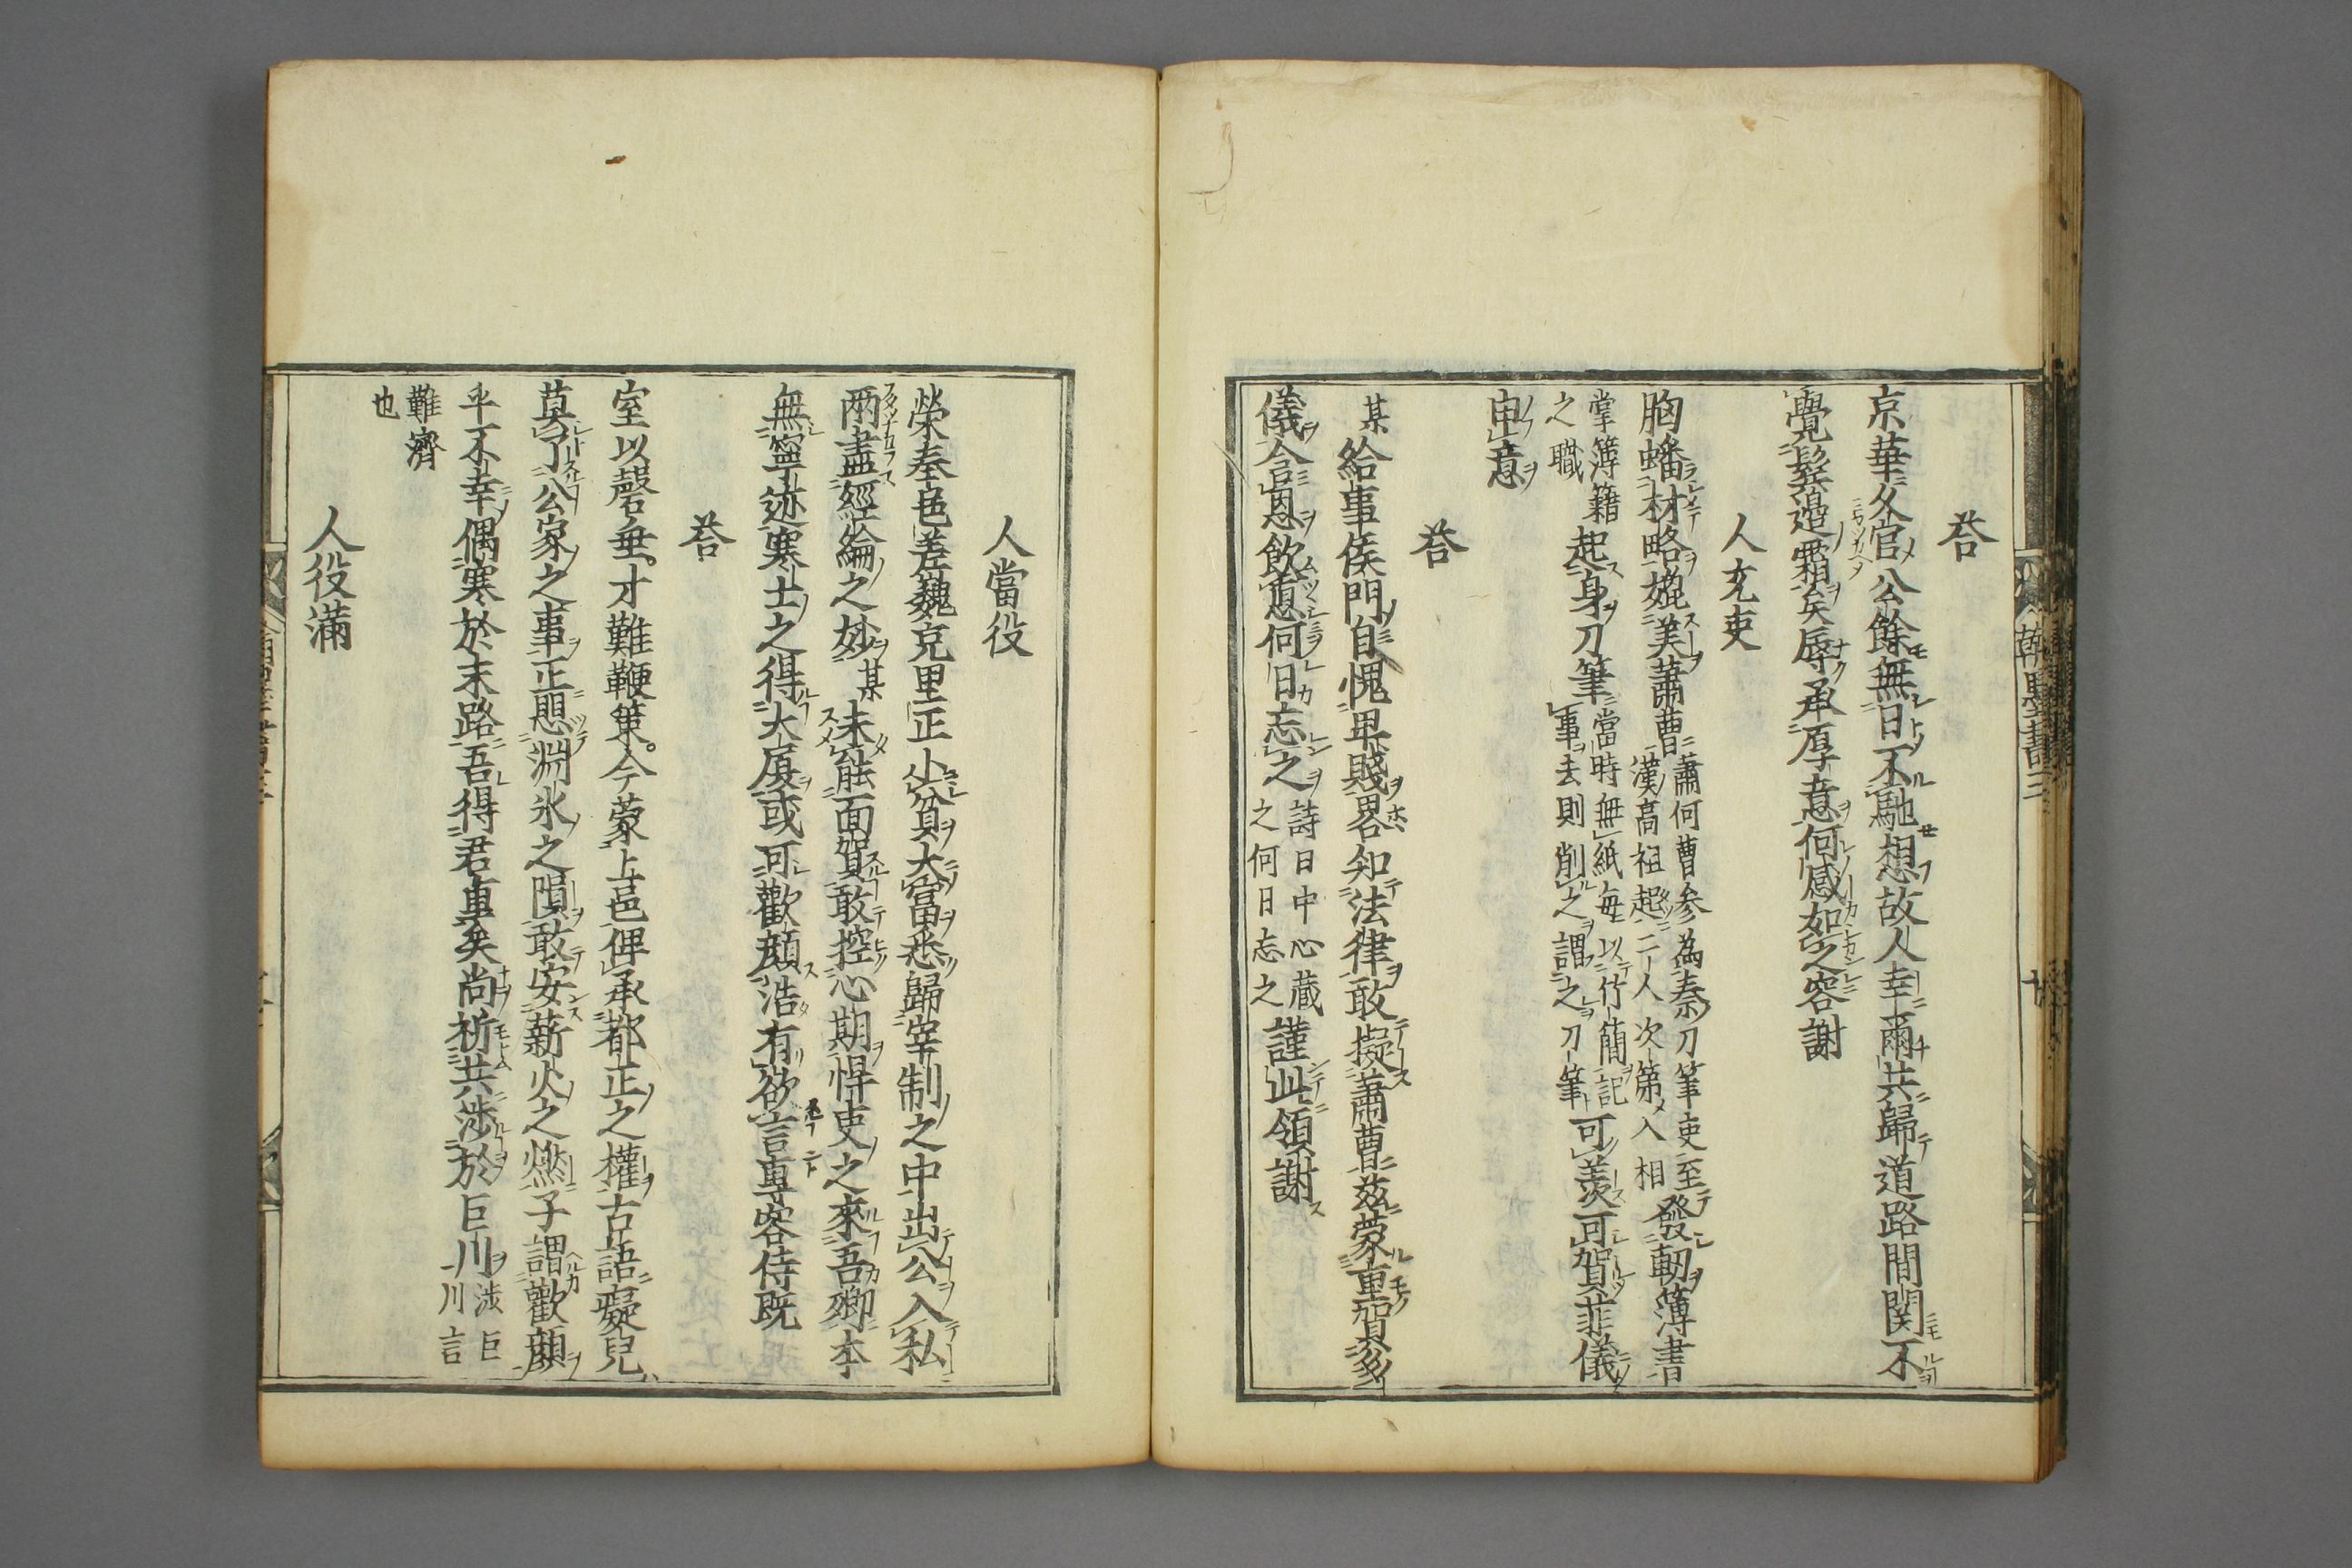 答
京華久官公餘無日不馳想故人幸爾共歸道路間関不
覺鬂邉霜矣辱承厚意何感如之容謝
人充吏
胸蟠材略媲美蕭曹
蕭何曹参為秦刀筆吏至
漢高祖起二人次第入相
發軔簿書
掌簿籍
之職
起身刀筆
當時無紙毎以竹簡記
事去則削之謂之刀筆
可羨可賀菲儀
申意
答
某給事侯門自愧卑賤畧知法律敢擬蕭曹茲蒙重賀多
儀含恩飲惪何日忘之
詩曰中心蔵
之何日忘之
謹此領謝
人當役
榮奉邑差巍克里正小貧大富悉歸宰制之中出公入私
兩盡經綸之妙某未能面賀敢控心期悍吏之來吾鄉本
無寧迹寒士之得大厦或可歡顔浩有欲言專容侍既
答
室以磬垂才難鞭策今蒙上邑俾承都正之權古語癡兒
莫了公家之事正愳淵氷之隕敢安薪火之燃子謂歡顔
乎不幸偶寒於末路吾得君重矣尚祈共涉於巨川
涉巨
川言
難濟
也
人役滿
翰墨書三